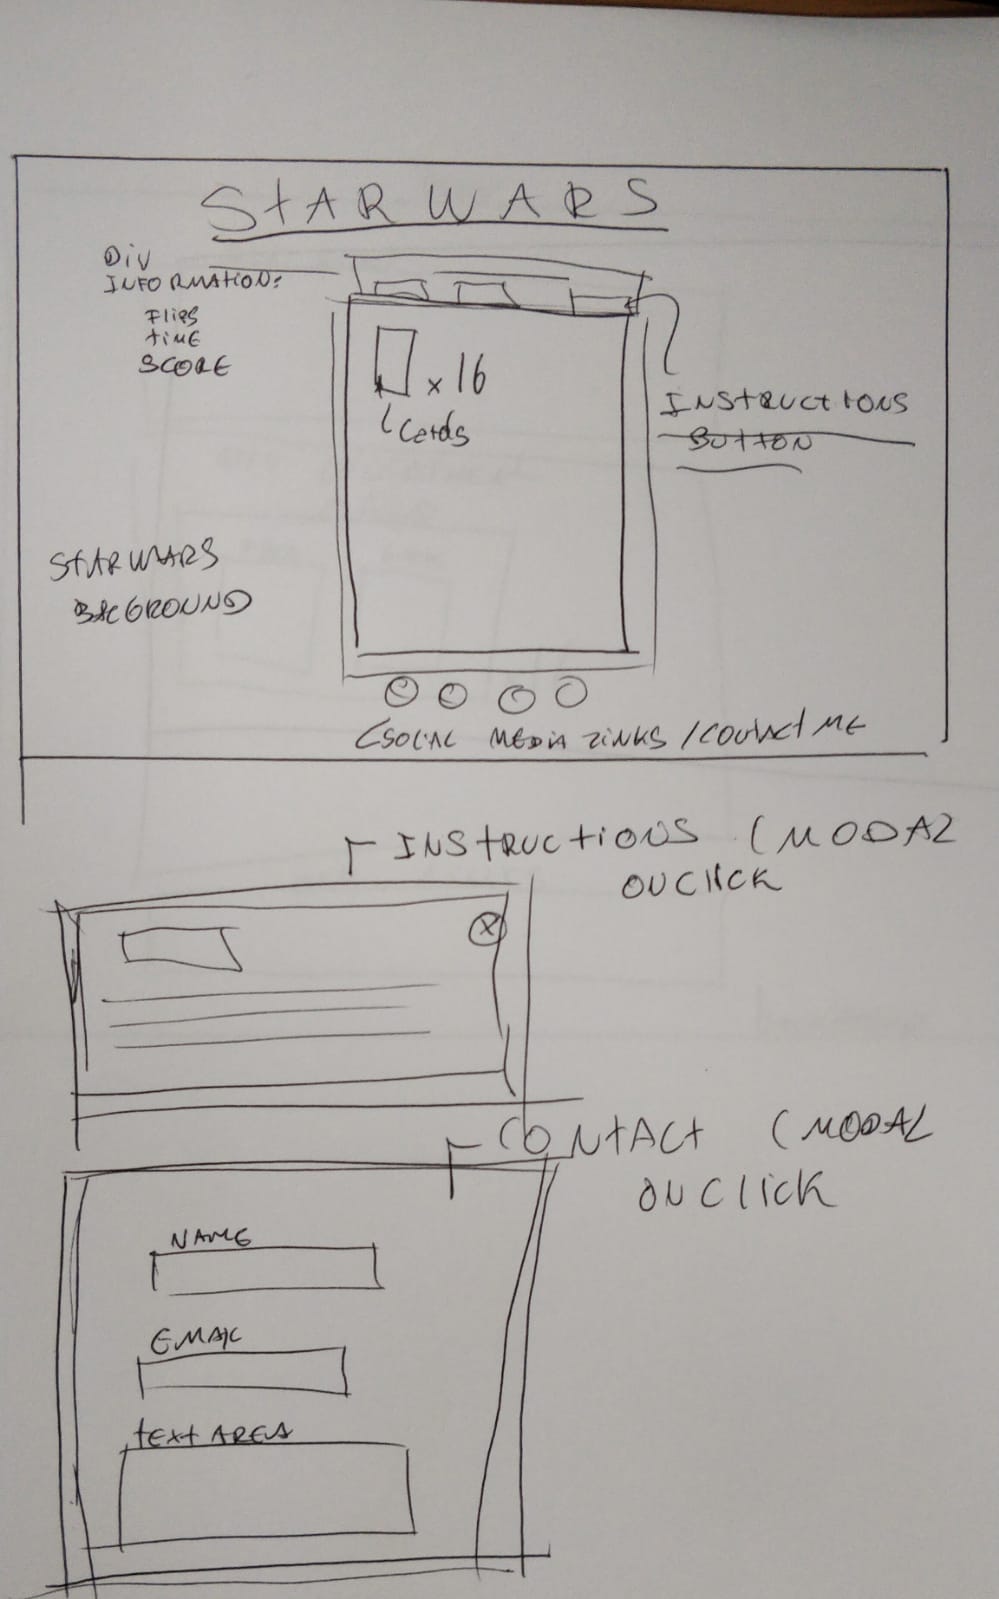 STARWARS
DiV
INFORMATION:
FlipS
timE
SCORE
x 16
Cards
INStRUCtIONS
BUttON
StARWARS
BACGROUND
SOCIAL MEDIA LINKS / CONtACt ME
INStRUCtiONS (MODAL
ON CLICK
CONtACt (MODAL
ON CLICK
NAME
EMAIL
tEXt AREA